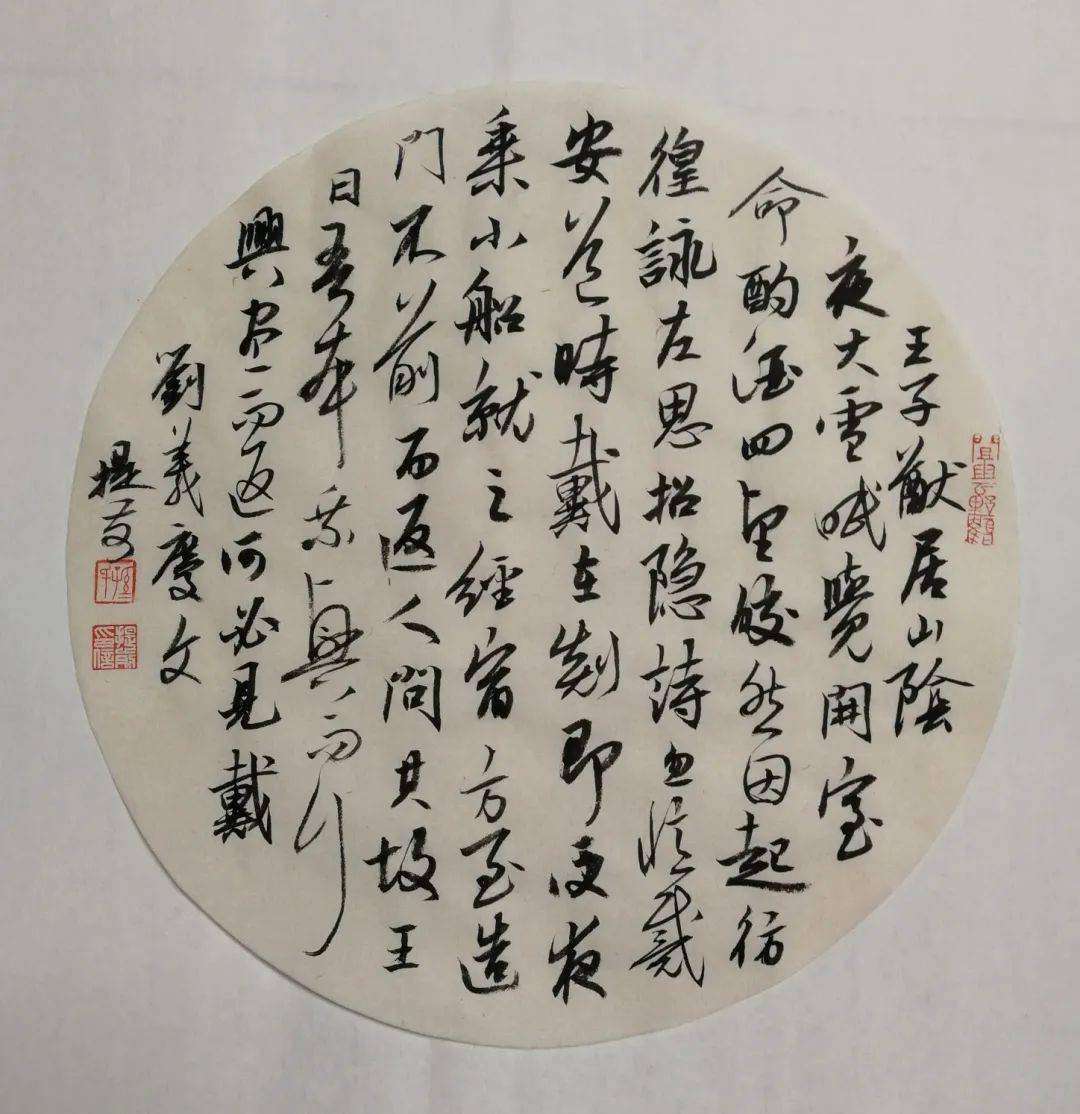 王子猷居山陰
夜大雪眠覺開室
命酌酒四望皎然因起彷
徨詠左思招隐詩忽憶戴
安道時戴在剡即便夜
乘小船就之經宿方至造
門不前而返人問其故王
曰吾本乘興而行
興盡而返何必見戴
劉義慶文